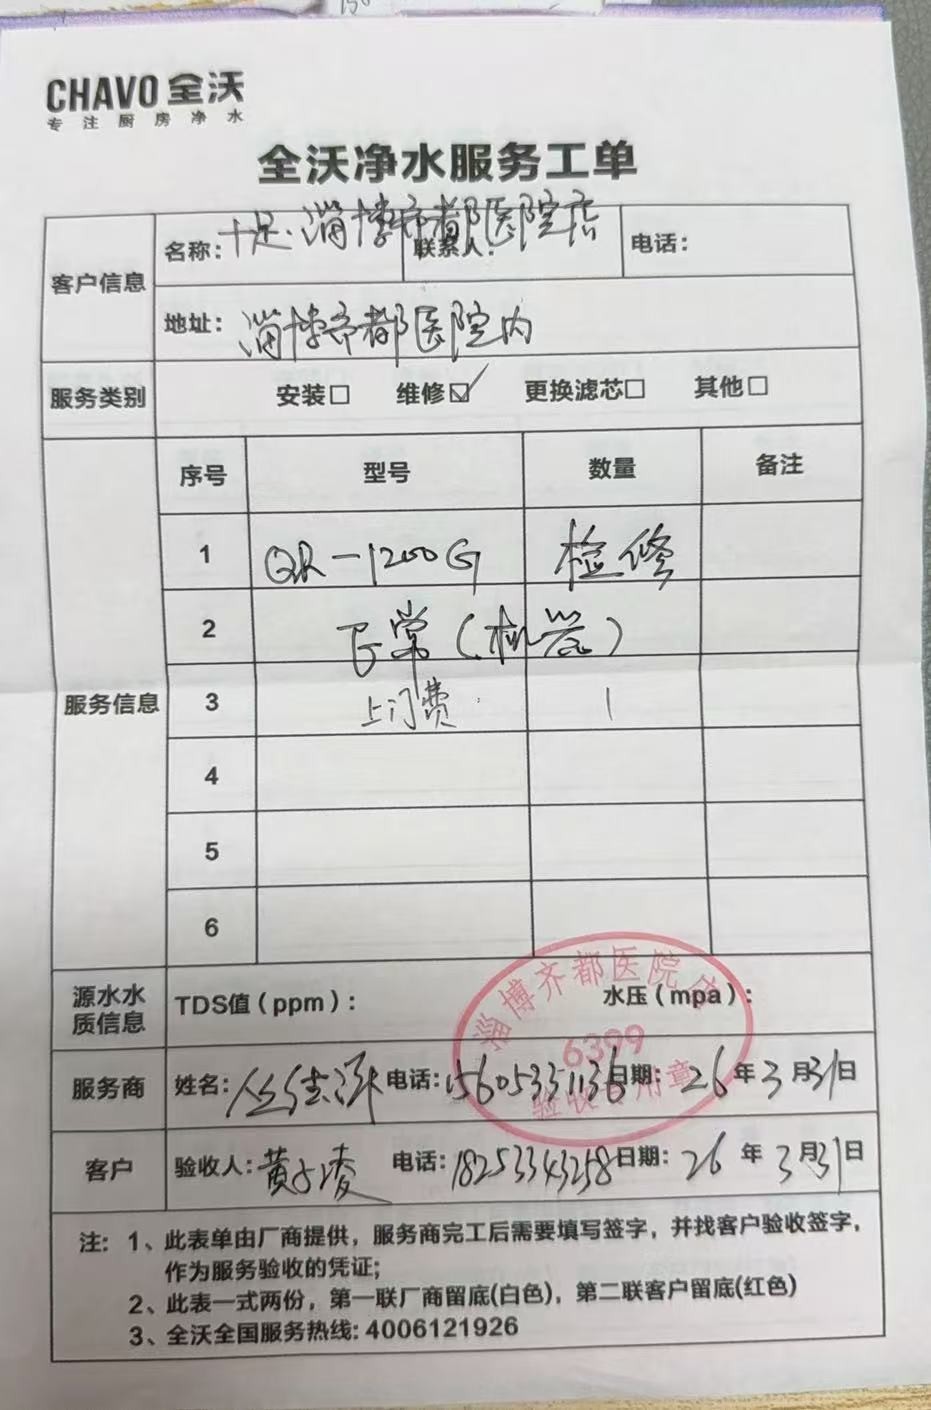 CHAVO 全沃
专注厨房净水
全沃净水服务工单
客户信息 名称: 十足.淄博齐都医院店 联系人: 电话:
地址: 淄博齐都医院内
服务类别 安装□ 维修☑ 更换滤芯□ 其他□
服务信息 序号 型号 数量 备注
1 QR-1200G 检修
2 正常(机器)
3 上门费 1
4
5
6
源水水质信息 TDS值(ppm): 水压(mpa):
淄博齐都医院店
6399
验收专用章
服务商 姓名: 电话: 15605331136 日期: 26年3月31日
客户 验收人: 黄子凌 电话: 18253343258 日期: 26年3月31日
注: 1、此表单由厂商提供，服务商完工后需要填写签字，并找客户验收签字，
作为服务验收的凭证;
2、此表一式两份，第一联厂商留底(白色)，第二联客户留底(红色)
3、全沃全国服务热线: 4006121926